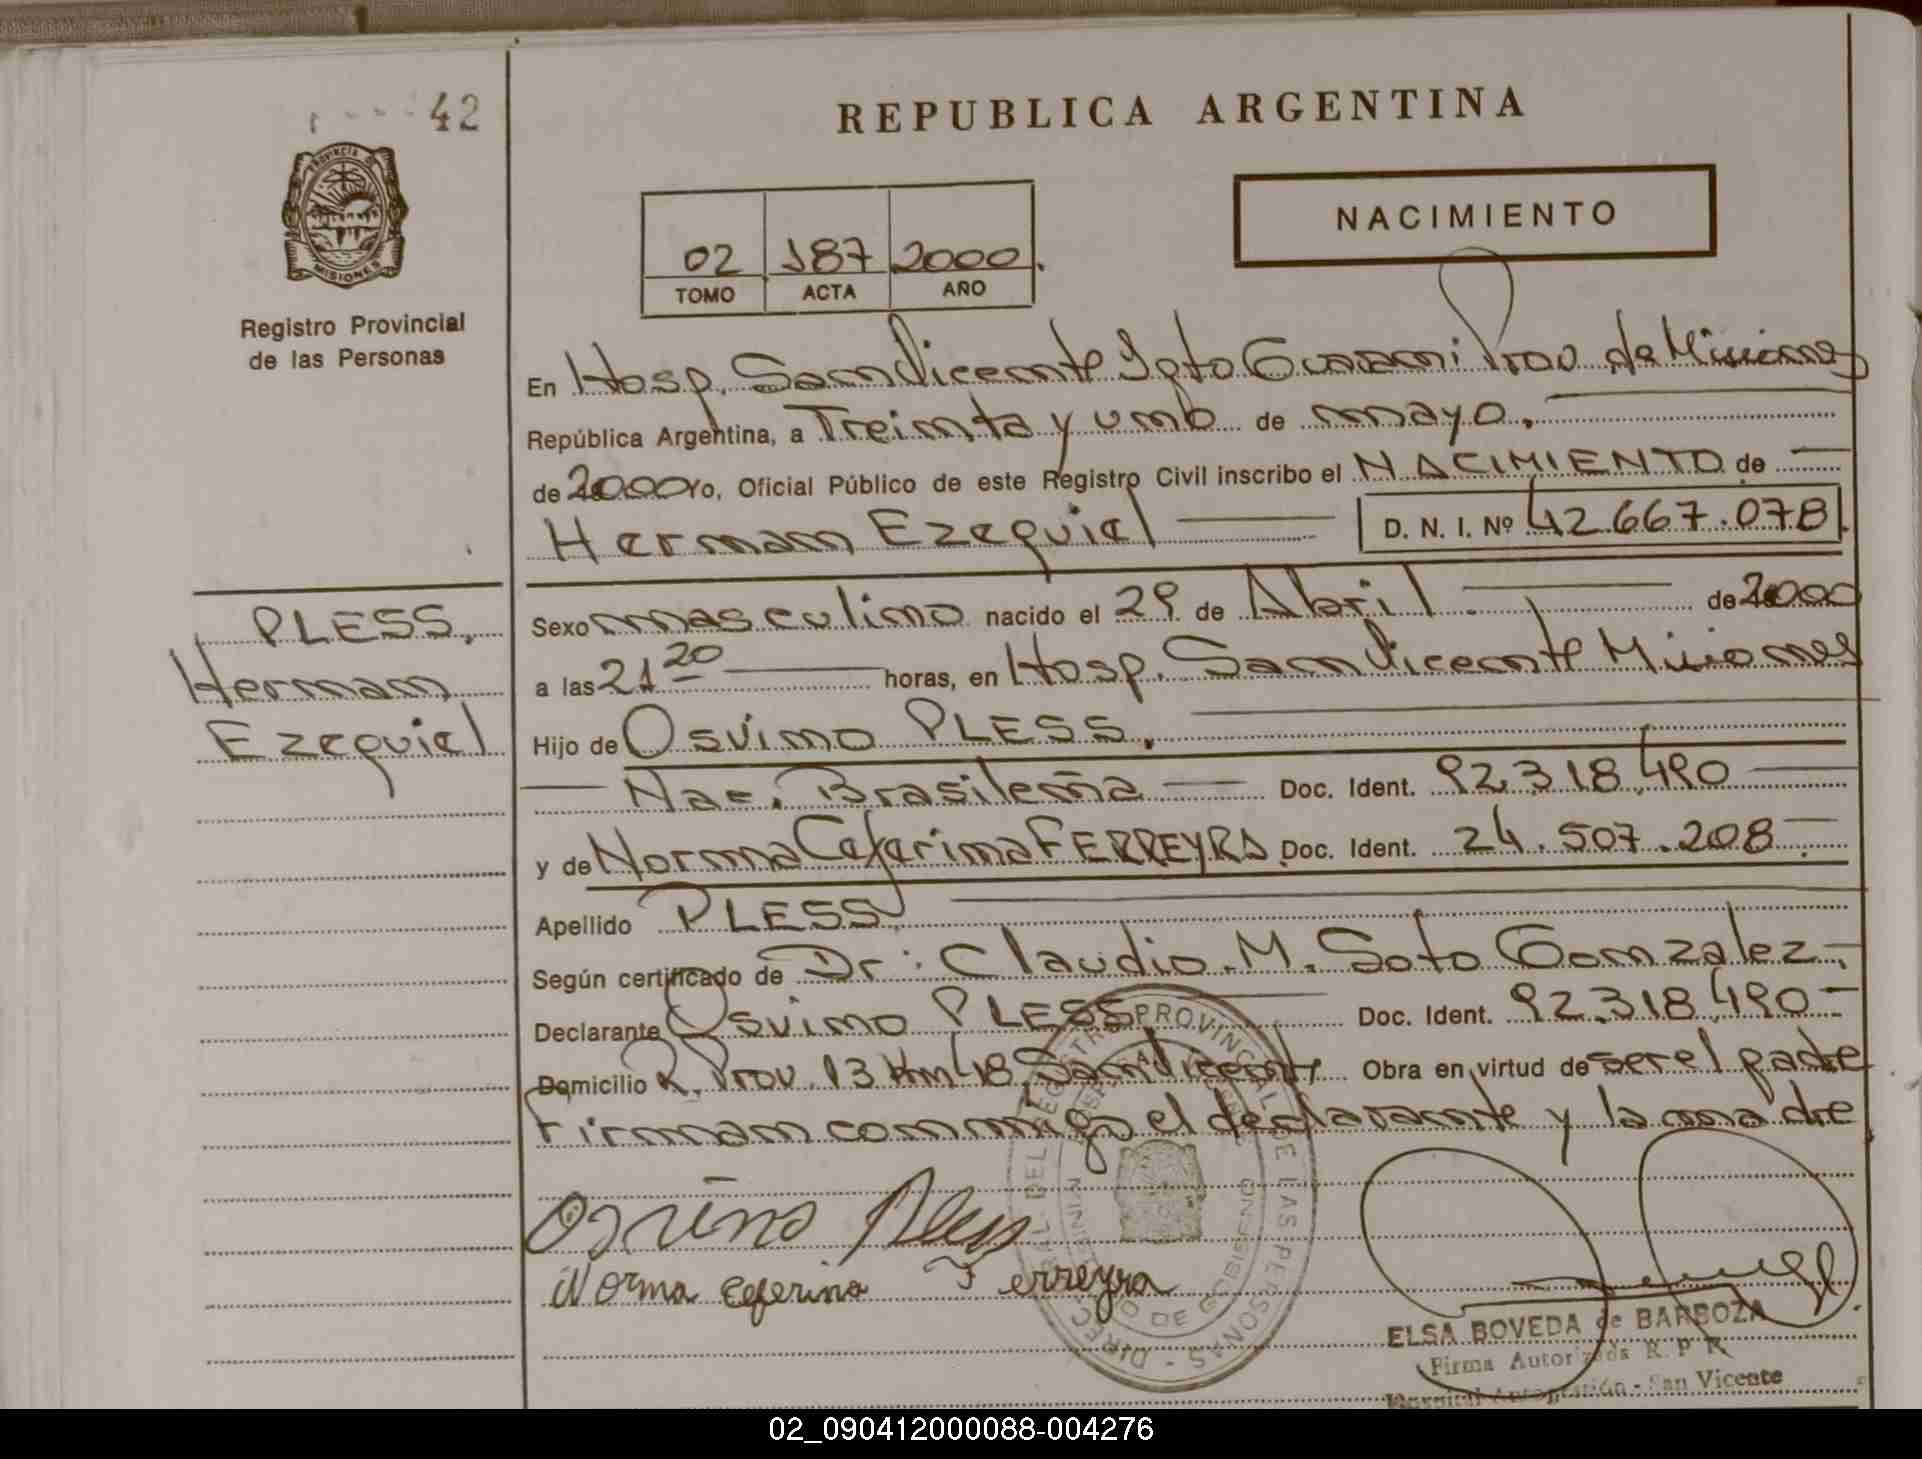 42
REPUBLICA ARGENTINA
PROVINCIA DE
MISIONES
Registro Provincial
de las Personas
NACIMIENTO
02 187 2000.
TOMO ACTA AÑO
En Hosp. San Vicente Dpto Guarani Prov. de Misiones
República Argentina, a Treinta y uno de mayo.
de 2000 Yo, Oficial Público de este Registro Civil inscribo el NACIMIENTO de
Hernan Ezequiel D. N. I. Nº 42.667.078
PLESS,
Hernan
Ezequiel
Sexo masculino nacido el 29 de Abril de 2000
a las 21 20 horas, en Hosp. San Vicente Misiones
Hijo de Osvino PLESS.
Nac. Brasileña Doc. Ident. 92.318.490
y de Norma Ceferina FERREYRA Doc. Ident. 24.507.208
Apellido PLESS
Según certificado de Dr. Claudio M. Soto Gonzalez
Declarante Osvino PLESS Doc. Ident. 92.318.490
Domicilio R. Prov. 13 Km 48 San Vicente Obra en virtud de ser el padre
Firman conmigo el declarante y la madre
Osvino Pless
Norma Ceferina Ferreyra
ELSA BOVEDA de BARBOZA
Firma Autorizada R. P. P.
San Vicente
02_090412000088-004276